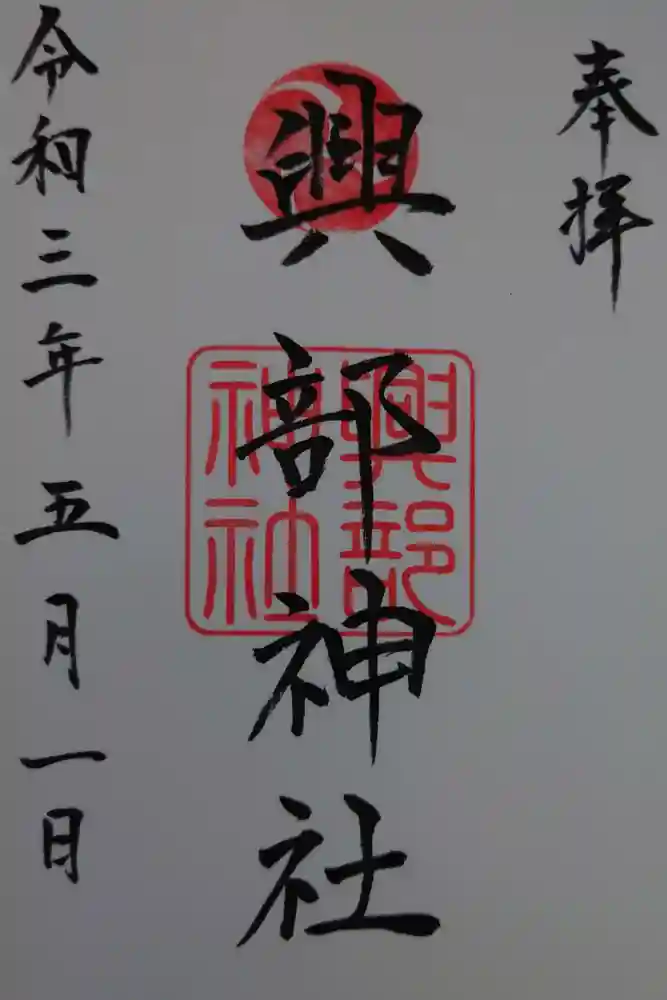 奉拝
興部神社
興部
神社
令和三年五月一日